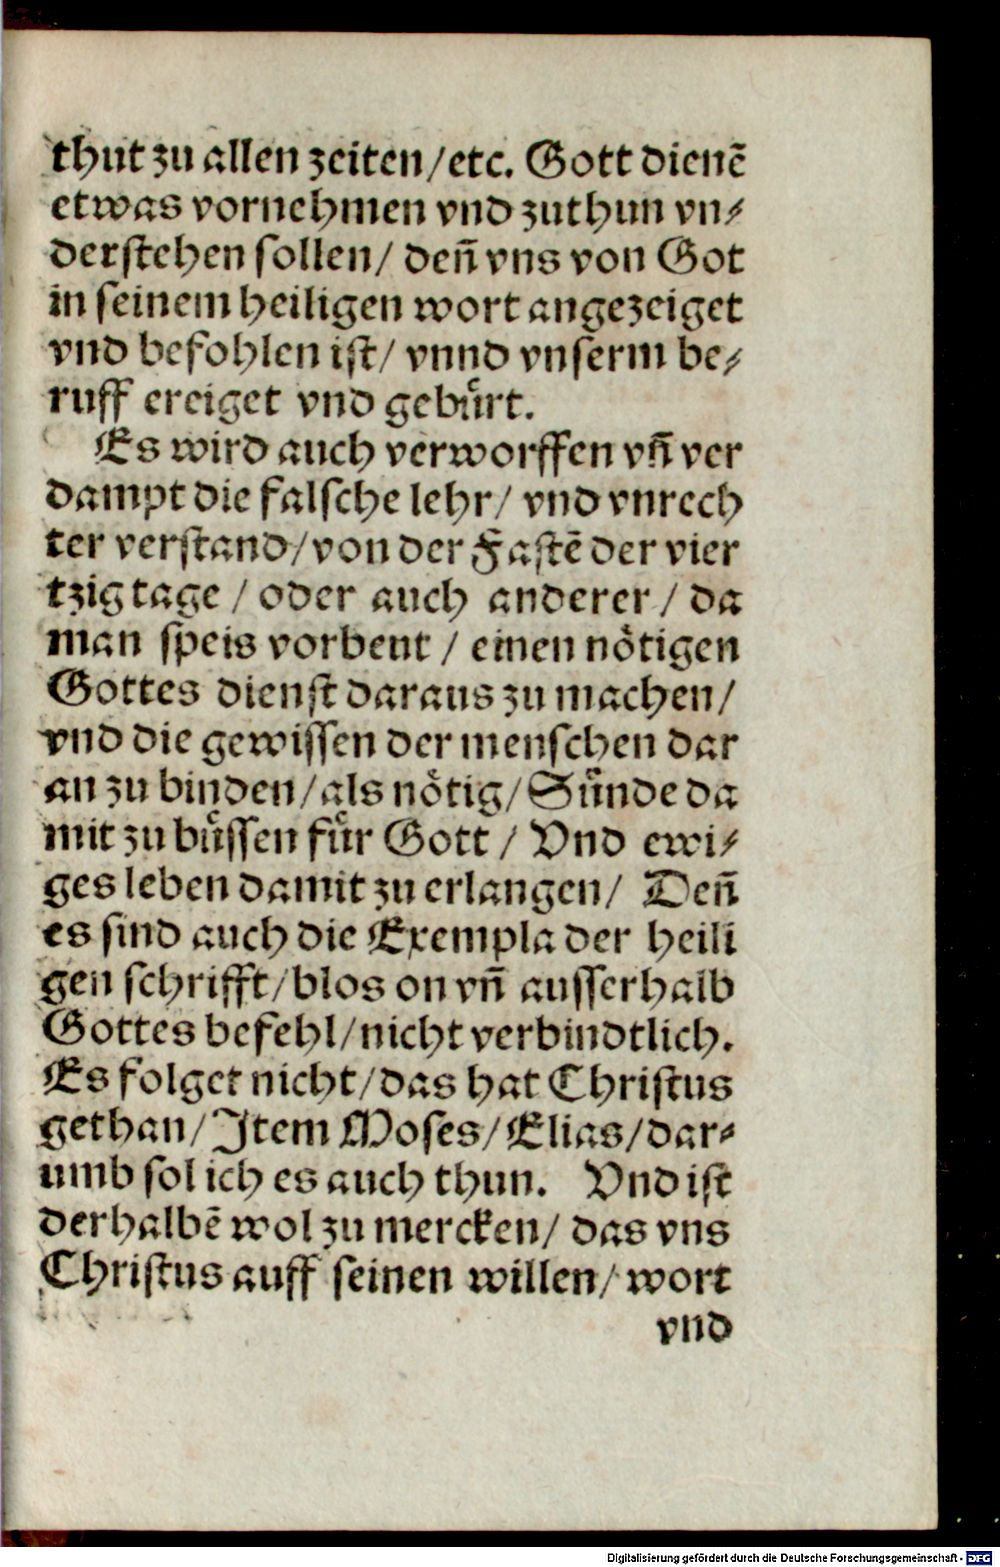 thut zu allen zeiten/etc. Gott dienē
etwas vornehmen vnd zuthun vn⸗
derstehen sollen/ deñ vns von Got
in seinem heiligen wort angezeiget
vnd befohlen ist/ vnnd vnserm be⸗
ruff ereiget vnd gebuͤrt.
Es wird auch verworffen vñ ver
dampt die falsche lehr/ vnd vnrech
ter verstand/von der Fastē der vier
tzig tage / oder auch anderer / da
man speis vorbent / einen noͤtigen
Gottes dienst daraus zu machen/
vnd die gewissen der menschen dar
an zu binden/als noͤtig/Suͤnde da
mit zu buͤssen fuͤr Gott / Vnd ewi⸗
ges leben damit zu erlangen/ Deñ
es sind auch die Exempla der heili
gen schrifft/blos on vñ ausserhalb
Gottes befehl/nicht verbindtlich.
Es folget nicht/das hat Christus
gethan/Item Moses/Elias/dar⸗
umb sol ich es auch thun. Vnd ist
derhalbē wol zu mercken/ das vns
Christus auff seinen willen/wort
vnd
Digitalisierung gefördert durch die Deutsche Forschungsgemeinschaft - DFG